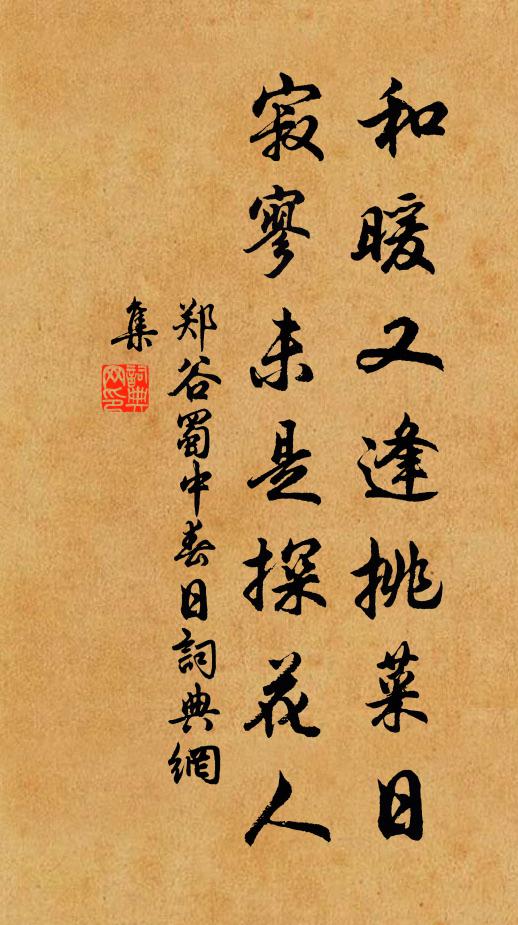 和暖又逢挑菜日
寂寥未是探花人
郑谷蜀中春日詞典網
集
詞典網印